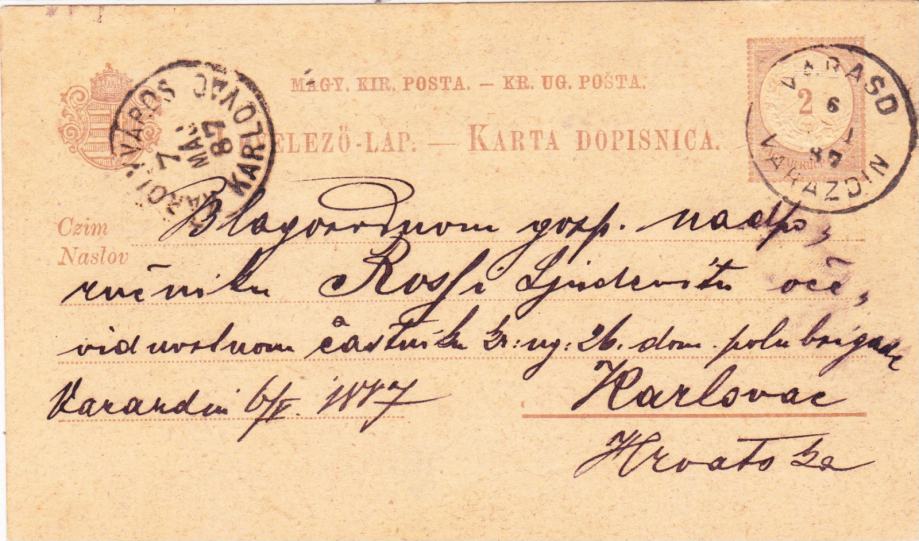 MAGY. KIR. POSTA. – KR. UG. POŠTA.
ELEZŐ-LAP. — KARTA DOPISNICA.
KÁROLYVÁROS
7
MÁJ.
87
KARLOVAC
2
VARASD
6
87
VARAZDIN
Czim
Naslov
Blagorodnom gosp. nadpo„
ručniku Rossi Ljudevitu oče„
vidnvolnom častniku kr: ug: 26. dom. polubrigade
Varaždin 6/V. 1887
Karlovac
Hrvatska